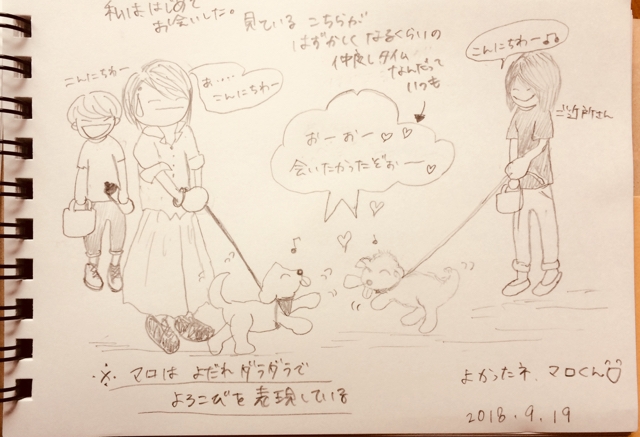 私ははじめて
お会いした。
見ている こちらが
はずかしくなるくらいの
仲良しタイム
なんだって
いつも
こんにちわー
あ....
こんにちわー
こんにちわー♪♪
ご近所さん
おーおー♡♡
会いたかったぞぉー♡
※ マロは よだれ ダラダラで
よろこびを 表現している
よかったネ、マロくん
2018.9.19